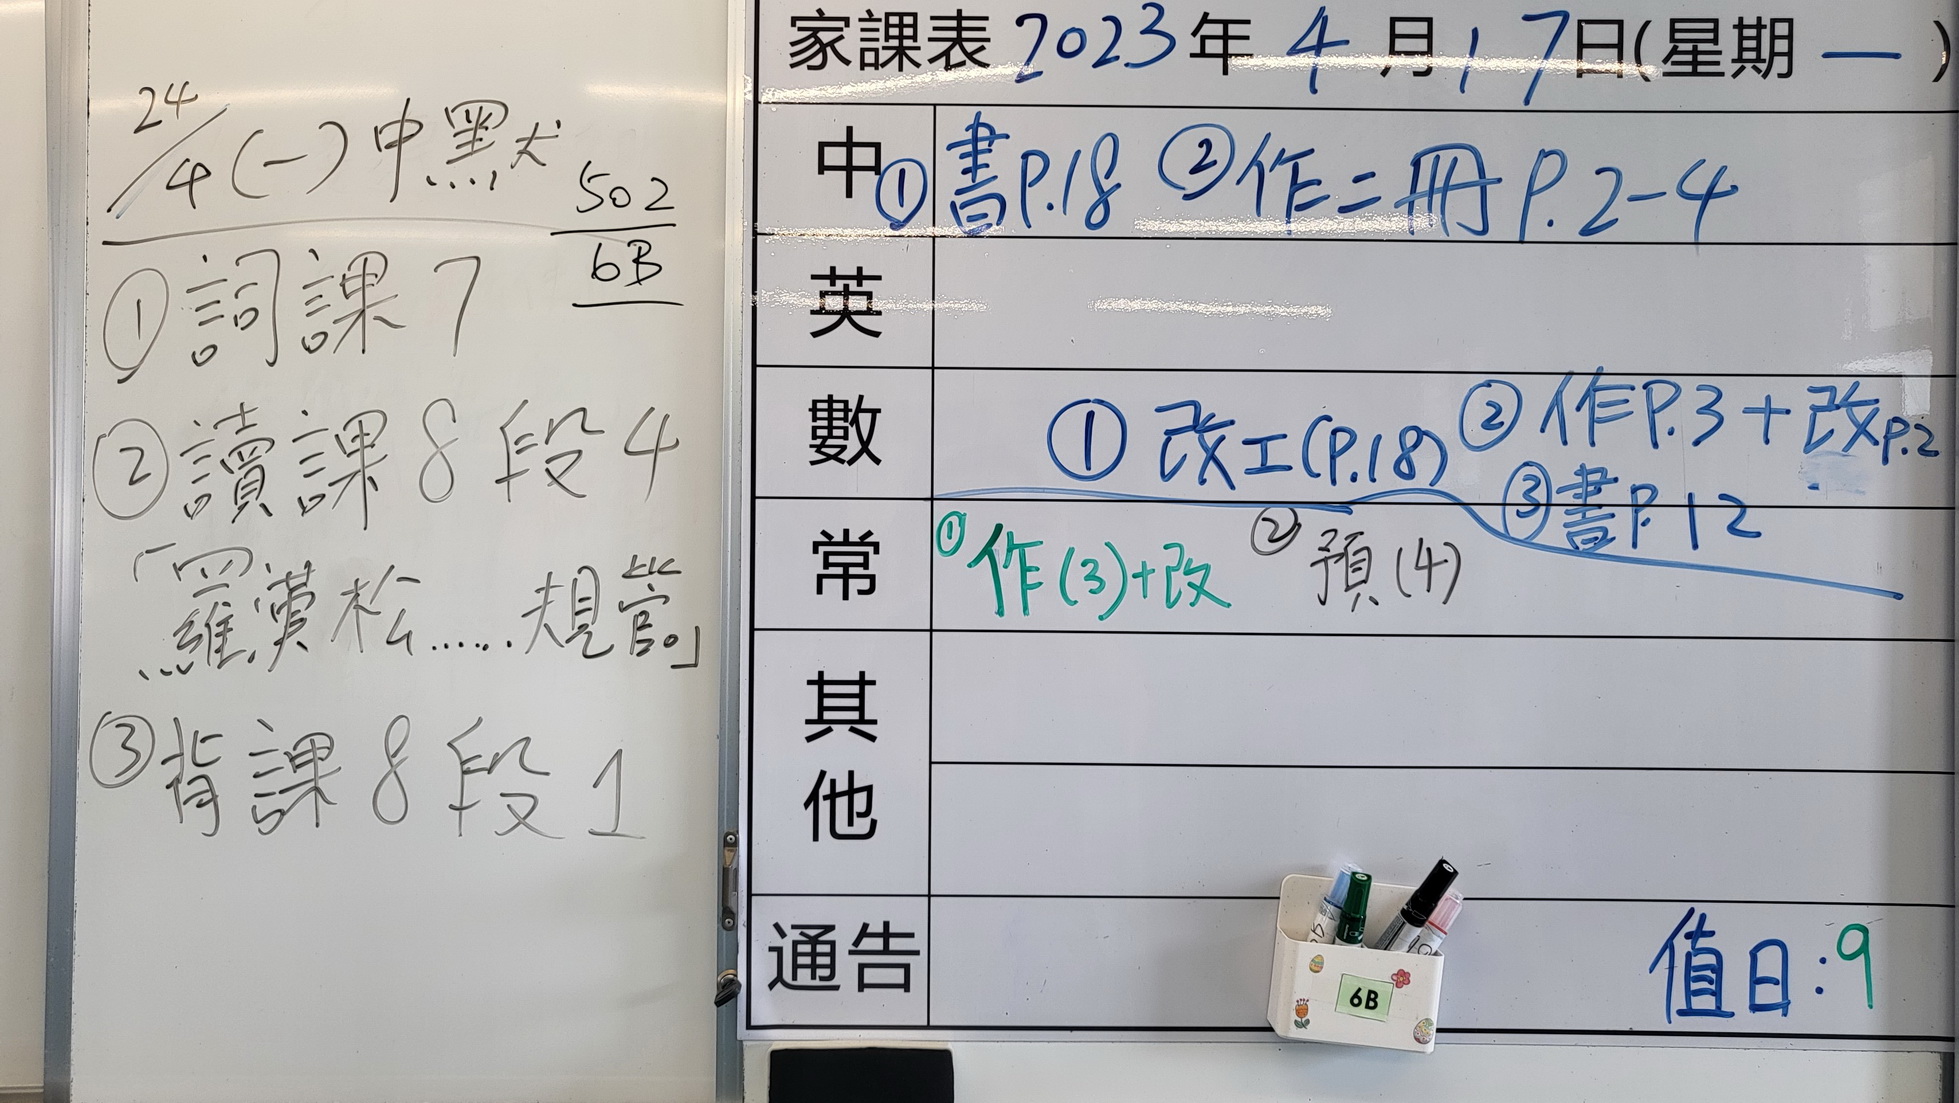 24/4(一)中默
502
6B
①詞課7
②讀課8段4
「羅漢松......規管。」
③背課8段1
家課表 2023年 4月17日(星期一)
中 ①書P.18 ②作二冊 P.2-4
英
數 ①改工(P.18) ②作P.3+改P.2
③書P.12
常 ①作(3)+改 ②預(4)
其他
通告
值日:9
6B